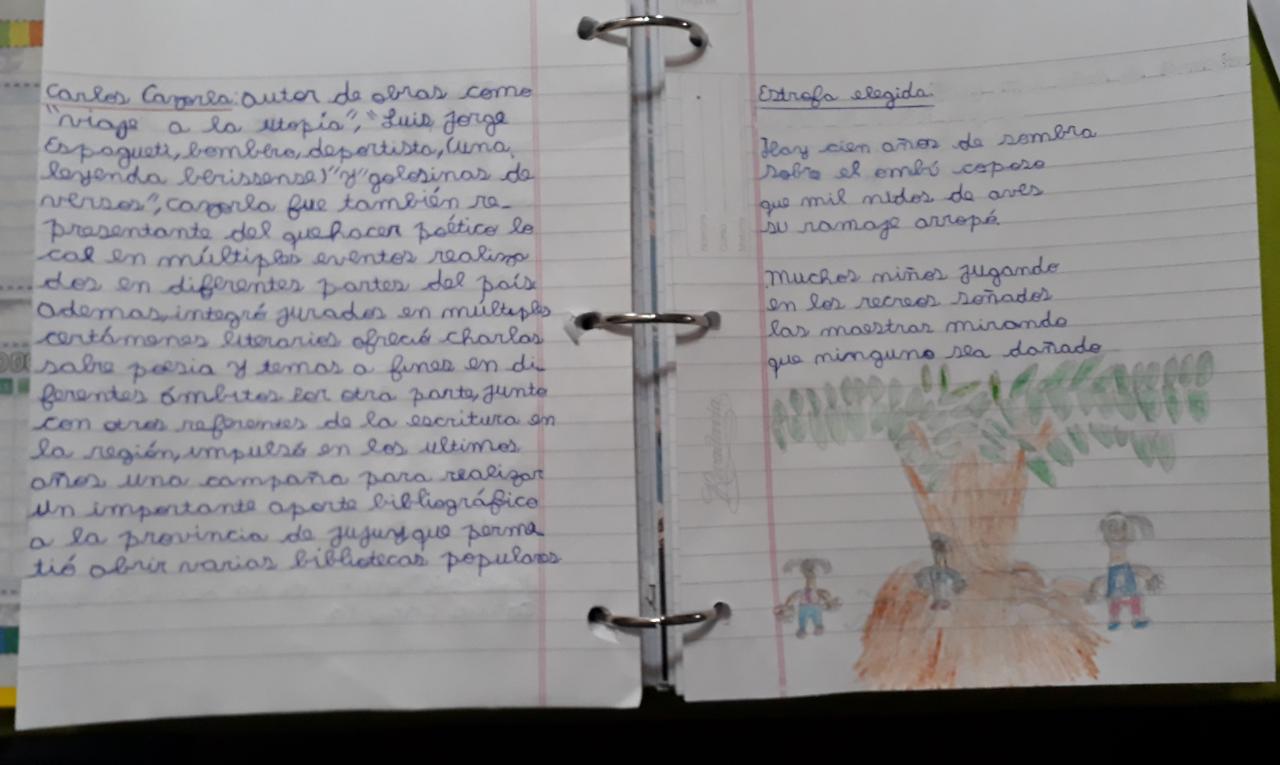 Carlos Cazorla: autor de obras como
"viaje a la utopía", "Luis Jorge
Espagueti, bombero, deportista, (una
leyenda berissense)" y "golosinas de
versos", cazorla fue también re-
presentante del quehacer poético lo
cal en múltiples eventos realiza
dos en diferentes partes del país
Ademas, integró jurados en múltiples
certámenes literarios ofreció charlas
sobre poesia y temas a fines en di-
ferentes ámbitos Por otra parte, junto
con otros referentes de la escritura en
la región, impulsó en los ultimos
años una campaña para realizar
un importante aporte bibliográfico
a la provincia de jujuy que perma
tió abrir varias bibliotecas populares
Estrofa elegida:
Hay cien años de sombra
sobre el ombú coposo
que mil nidos de aves
su ramaje arropó.
Muchos niños jugando
en los recreos soñados
las maestras mirando
que ninguno sea dañado
Rivadavia